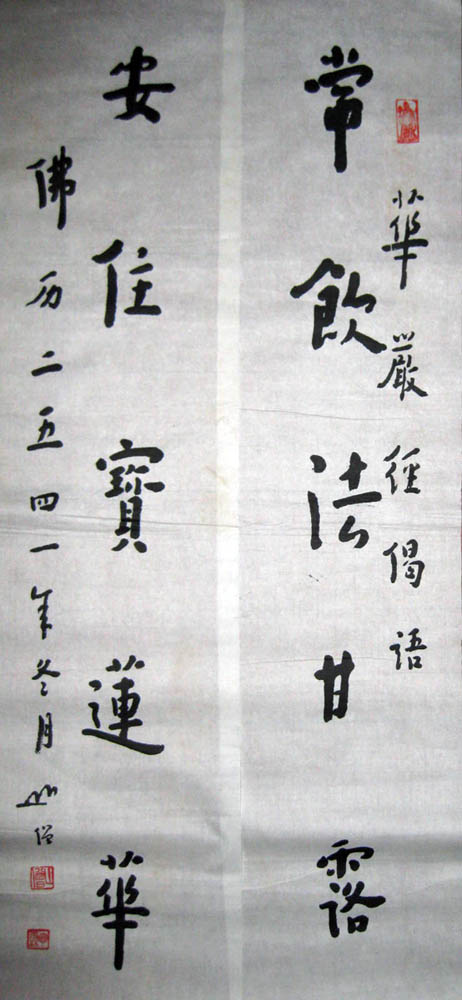 華嚴經偈語
常飲法甘露
安住寶蓮華
佛历二五四一年冬月